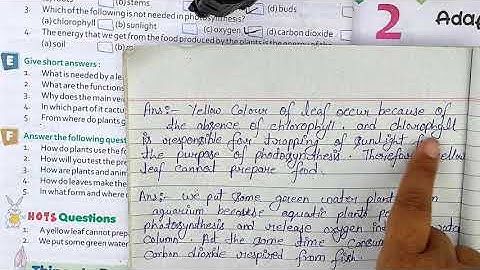 (b) stems
(d) buds
3. Which of the following is not needed in photosynthesis?
(a) chlorophyll (b) sunlight (c) oxygen (d) carbon dioxide
4. The energy that we get from the food produced by the plants is the energy of the
(a) soil
2
Adap
E
Give short answers :
1. What is needed by a lea
2. What are the functions
3. Why does the main vei
4. In which part of it cactu
5. From where do plants g
F
Answer the following quest
1. How do plants use the fo
2. How will you test the pre
3. How are plants and anim
4. How do leaves make the
5. How do desert plants
HOTS Questions
1. A yellow leaf cannot prepar
2. We put some green water
Ans:- Yellow Colour of leaf occur because of
the absence of chlorophyll. and chlorophyll
is responsible for trapping of sunlight for
the purpose of photosynthesis. Therefore yellow
leaf cannot prepare food.
Ans: we put some green water plants in
aquarium because aquatic plants
photosynthesis and release oxygen in
column. At the same time Consum
Carbon dioxide respired from fish.